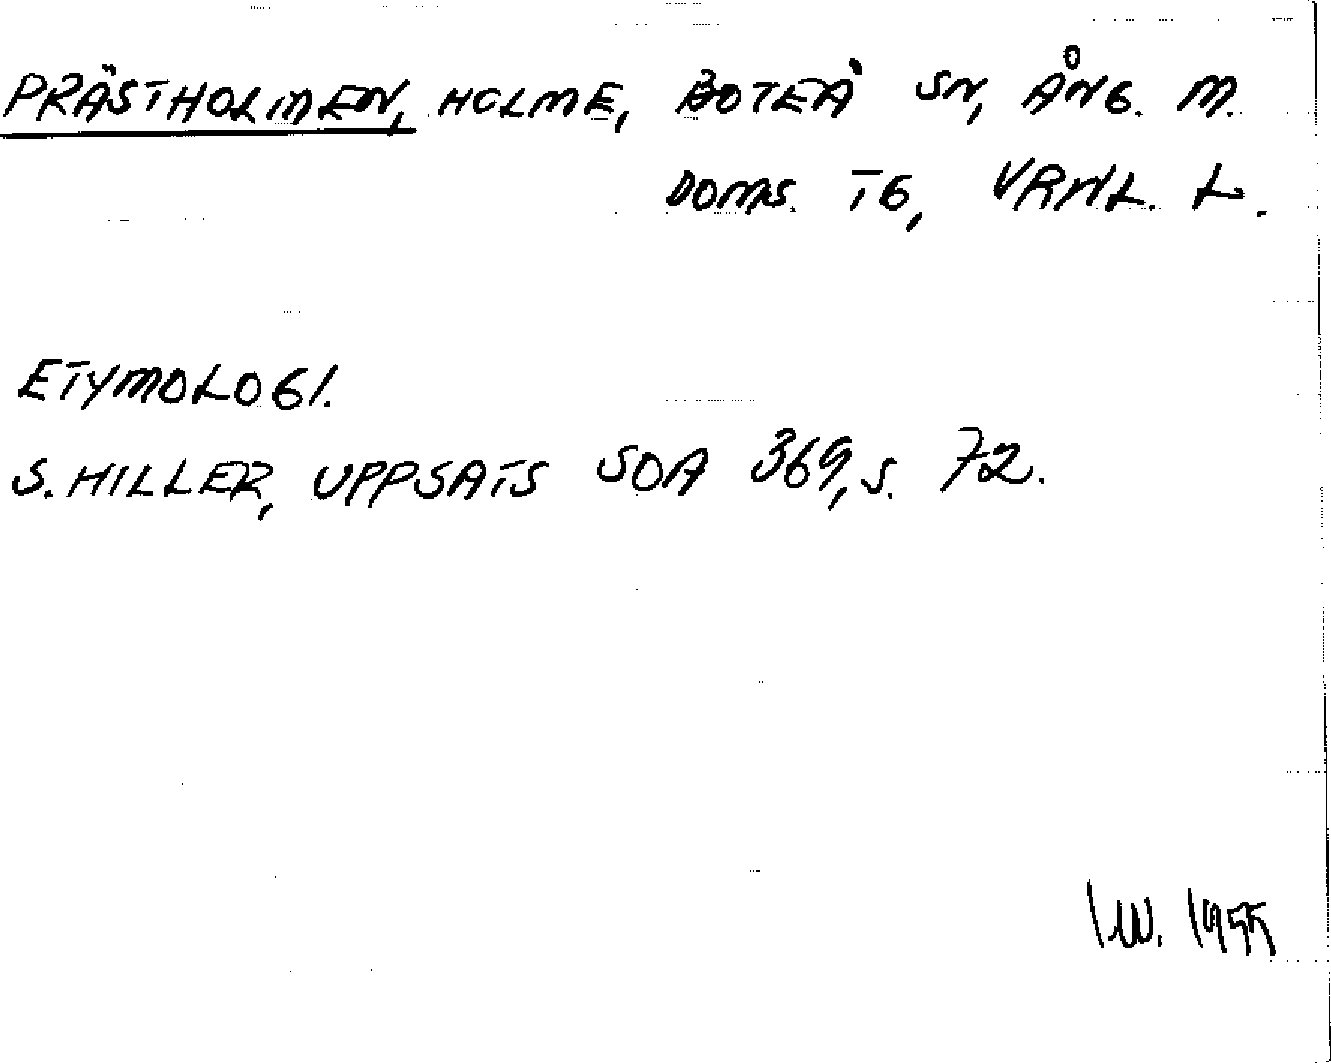 PRÄSTHOLMEN, HOLME, BOTEÅ SN, ÅNG. M.
DOMS. TG, VRNL. L.
ETYMOLOGI.
S. HILLER, UPPSATS SOA 369, S. 72.
I.W. 1955